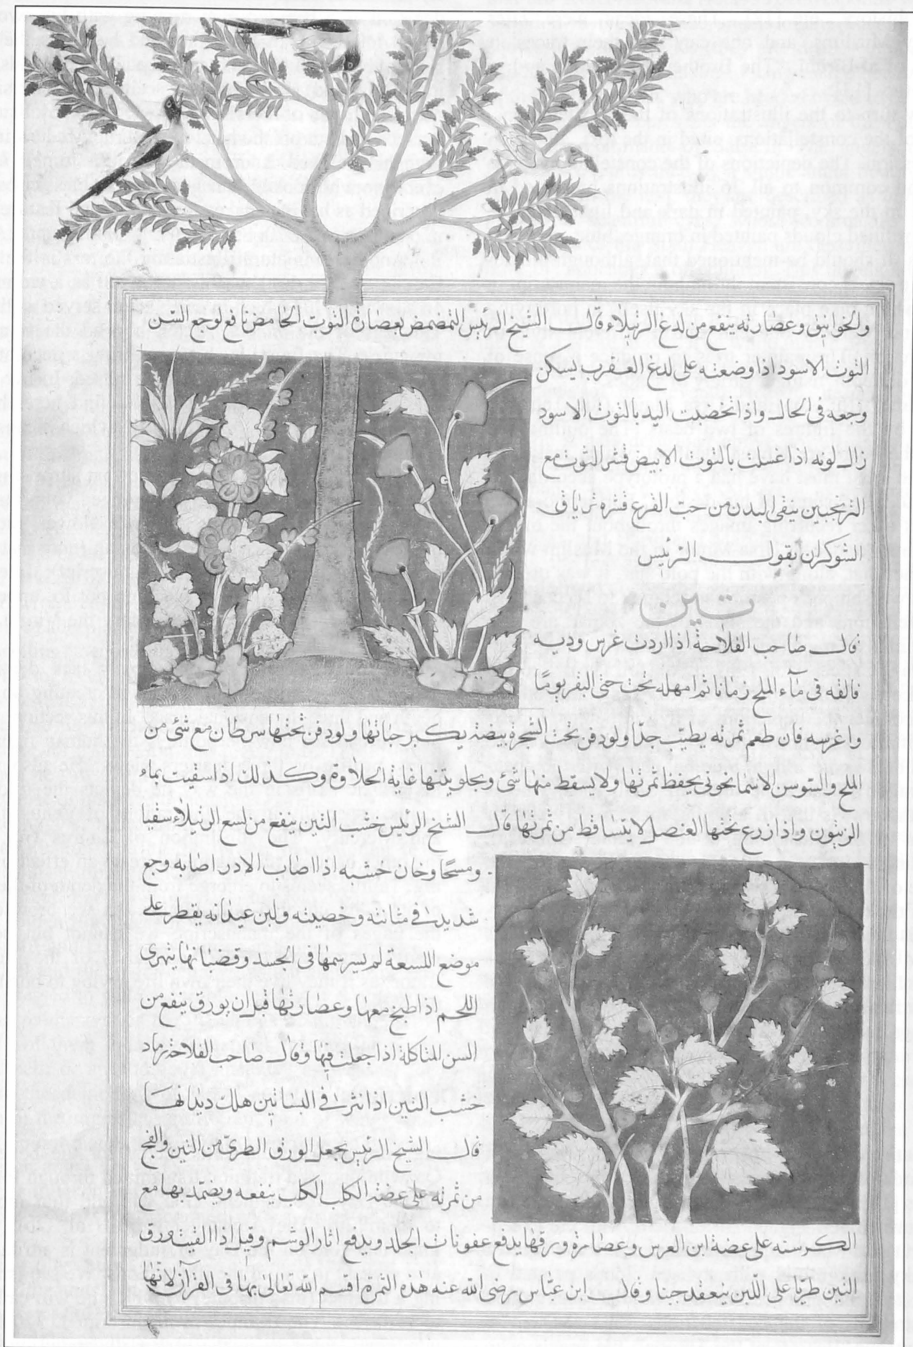 والخوانيق وعصارته ينفع من لدغ الرتيلاء قال الشيخ الرئيس التمضمض بعصارة التوت الحامض نافع لوجع السن
التوت الاسود اذا وضعته على لدغ العقرب يسكن
وجعه فى الحال واذا تخضبت اليد بالتوت الاسود
زال لونه اذا غسلت بالتوت الابيض قشر التوت مع
الترنجبين ينقى البدن من حب القرع قشره ترياق
الشوكران بقول الرئيس
تين
قال صاحب الفلاحة اذا اردت غرس وديه
فالقه فى ماء الملح زمانا ثم امهله تحت خثى البقر يوما
واغرسه فان طعم ثمرته يطيب جدا ولو دفن تحت الشجرة بيضة يكبر حباتها ولو دفن تحتها سرطان مع شئ من
الملح والسوسن الاسمانجونى يحفظ ثمرتها ولا يسقط منها شئ ويحلو تينها غاية الحلاوة وكذلك اذا سقيت بماء
الزيتون واذا زرع تحتها العنصل لا يتساقط من ثمرتها قال الشيخ الرئيس خشب التين ينفع من لسع الرتيلاء سقيا
ومسحا ودخان خشبه اذا اصاب الادر اصابه وجع
شديد فى مثانته وخصيته ولبن عيدانه يقطر على
موضع اللسعة لم يسر سمها فى الجسد وقضبانها يتهرى
اللحم اذا طبخ معها وعصارتها قبل ان يورق ينفع من
السن المتاكلة اذا جعلت فيها وقال صاحب الفلاحة رماد
خشب التين اذا نثر فى البساتين هلك ديدانها
قال الشيخ الرئيس يجعل الورق الطرى من التين والفج
من ثمرته على عضة الكلب الكلب ينفعه ويضمد بها مع
الكرسنه على عضة ابن العرس وعصارة ورقها يدفع عفونات الجلد ويدفع اثار الوشم وقيل اذا القيت ورق
التين طريا على اللبن ينعقد جبنا وقال ابن عباس رضى الله عنه هذه الثمرة اقسم الله تعالى بها فى القرآن لانها